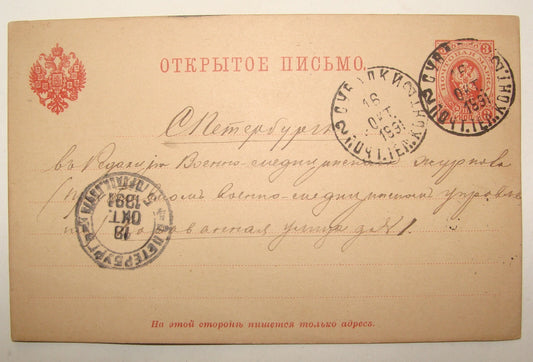 ОТКРЫТОЕ ПИСЬМО.
3
СУВАЛКИ
16
ОКТ.
1891
ПОЧТ. ТЕЛ. КОН.
16
ОКТ.
1891
ПОЧТ. ТЕЛ. КОН.
С Петербургъ
въ Редакцію Военно-медицинскаго журнала
(при Главном военно-медицинском управле
нии) Караванная улица д №1.
С. ПЕТЕРБУРГЪ
18
ОКТ.
1891
На этой сторонѣ пишется только адресъ.